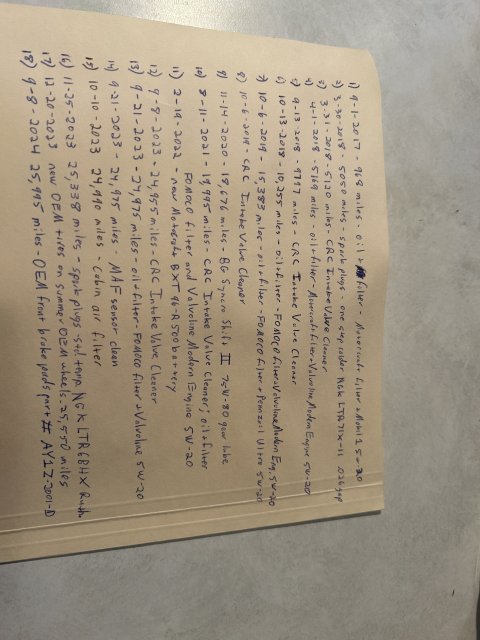 1) 9-1-2017 - 968 miles - oil + filter - Motorcraft filter + Mobil 1 5w-20
2) 3-30-2018 - 5050 miles - spark plugs - one step colder NGK LTR7IX-11 .026 gap
3) 3-31-2018 - 5120 miles - CRC Intake Valve Cleaner
4) 4-1-2018 - 5169 miles - oil + filter - Motorcraft filter + Valvoline Modern Engine 5W-20
5) 9-13-2018 - 9797 miles - CRC Intake Valve Cleaner
6) 10-13-2018 - 10,255 miles - oil + filter - FOMOCO filter + Valvoline Modern Eng. 5W-20
7) 10-6-2019 - 15,383 miles - oil + filter - FOMOCO filter + Pennzoil Ultra 5w-20
8) 10-6-2019 - CRC Intake Valve Cleaner
9) 11-14-2020 - 18,676 miles - BG Syncro Shift II 75W-80 gear lube
10) 8-11-2021 - 19,995 miles - CRC Intake Valve Cleaner; oil + filter
FOMOCO filter and Valvoline Modern Engine 5W-20
11) 2-19-2022 - new Motorcraft BXT 96-R 500 battery
12) 9-8-2023 - 24,955 miles - CRC Intake Valve Cleaner
13) 9-21-2023 - 24,975 miles - oil + filter - FOMOCO filter + Valvoline 5W-20
14) 9-21-2023 - 24,975 miles - MAF sensor clean
15) 10-10-2023 24,990 miles - Cabin air filter
16) 11-25-2023 25,338 miles - spark plugs - std temp. NGK LTR6BHX Ruth.
17) 12-20-2023 new OEM tires on summer OEM wheels. 25,550 miles
18) 9-8-2024 25,995 miles - OEM front brake pads part # AY1Z-2001-D